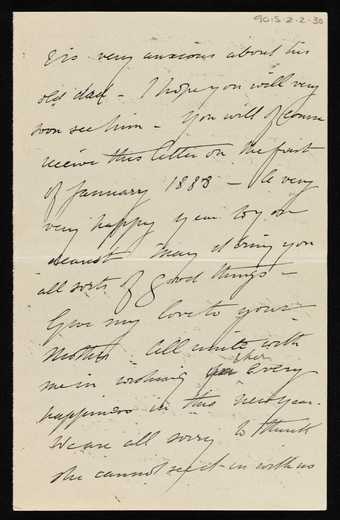 90.5.2.2-30
& is very anxious about his
old dad - I hope you will very
soon see him - You will of course
receive this letter on the first
of January 1888 - A very
very happy year to you
dearest May it bring you
all sorts of good things -
Give my love to your
Mother. All unite with
me in wishing her every
happiness in this new year.
We are all sorry to think
she cannot see it in with us